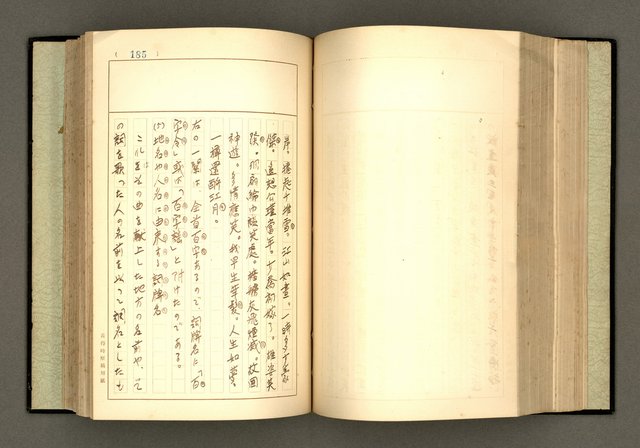 (185)
岸。捲起千堆雪。江山如畫。一時多少豪
傑。遙想公瑾當年。小喬初嫁了。雄姿英
發。羽扇綸巾談笑處。檣艣灰飛煙滅。故國
神遊。多情應笑。我早生華髮。人生如夢。
一樽還酹江月。
右の一闋は、全首百字あるので、詞牌名に「百
字令」或は「百字謠」と付けたのである。
地名や人名に由来する詞牌名
これはその曲を献上した地方の名前や、そ
の詞を歌った人の名前を以って調名としたも